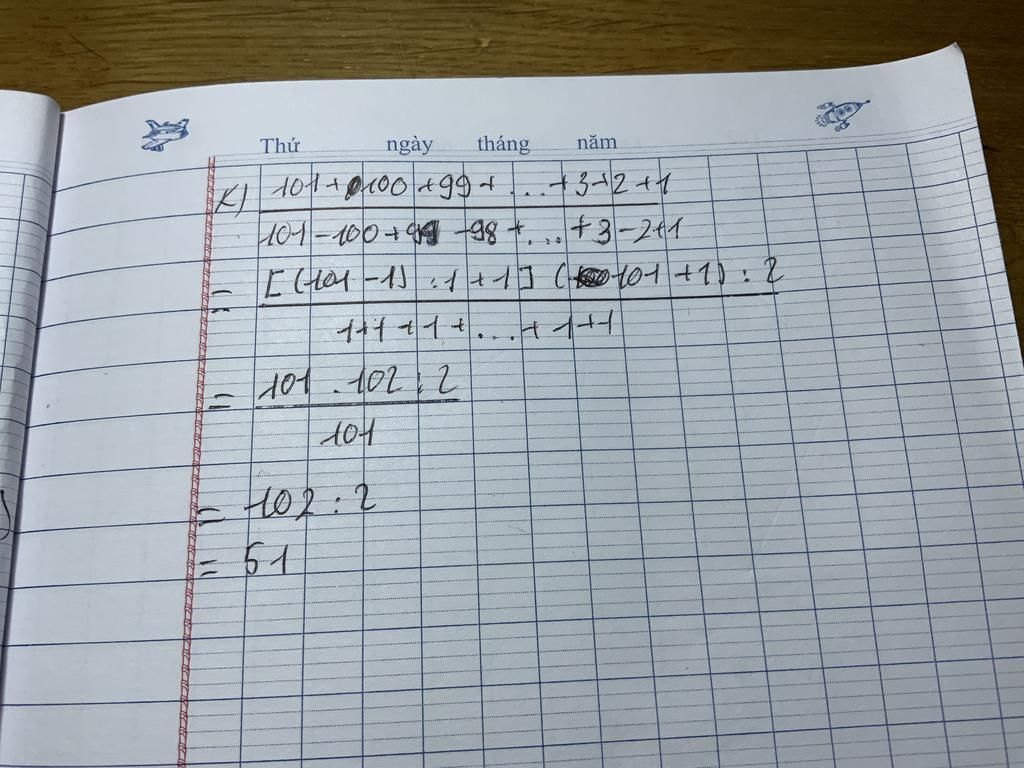 Thứ ngày tháng năm
K) 101 + 100 + 99 + ... + 3 + 2 + 1
101 - 100 + 99 - 98 + ... + 3 - 2 + 1
= [(101 - 1) : 1 + 1] (101 + 1) : 2
1 + 1 + 1 + ... + 1 + 1
= 101 . 102 : 2
101
= 102 : 2
= 51